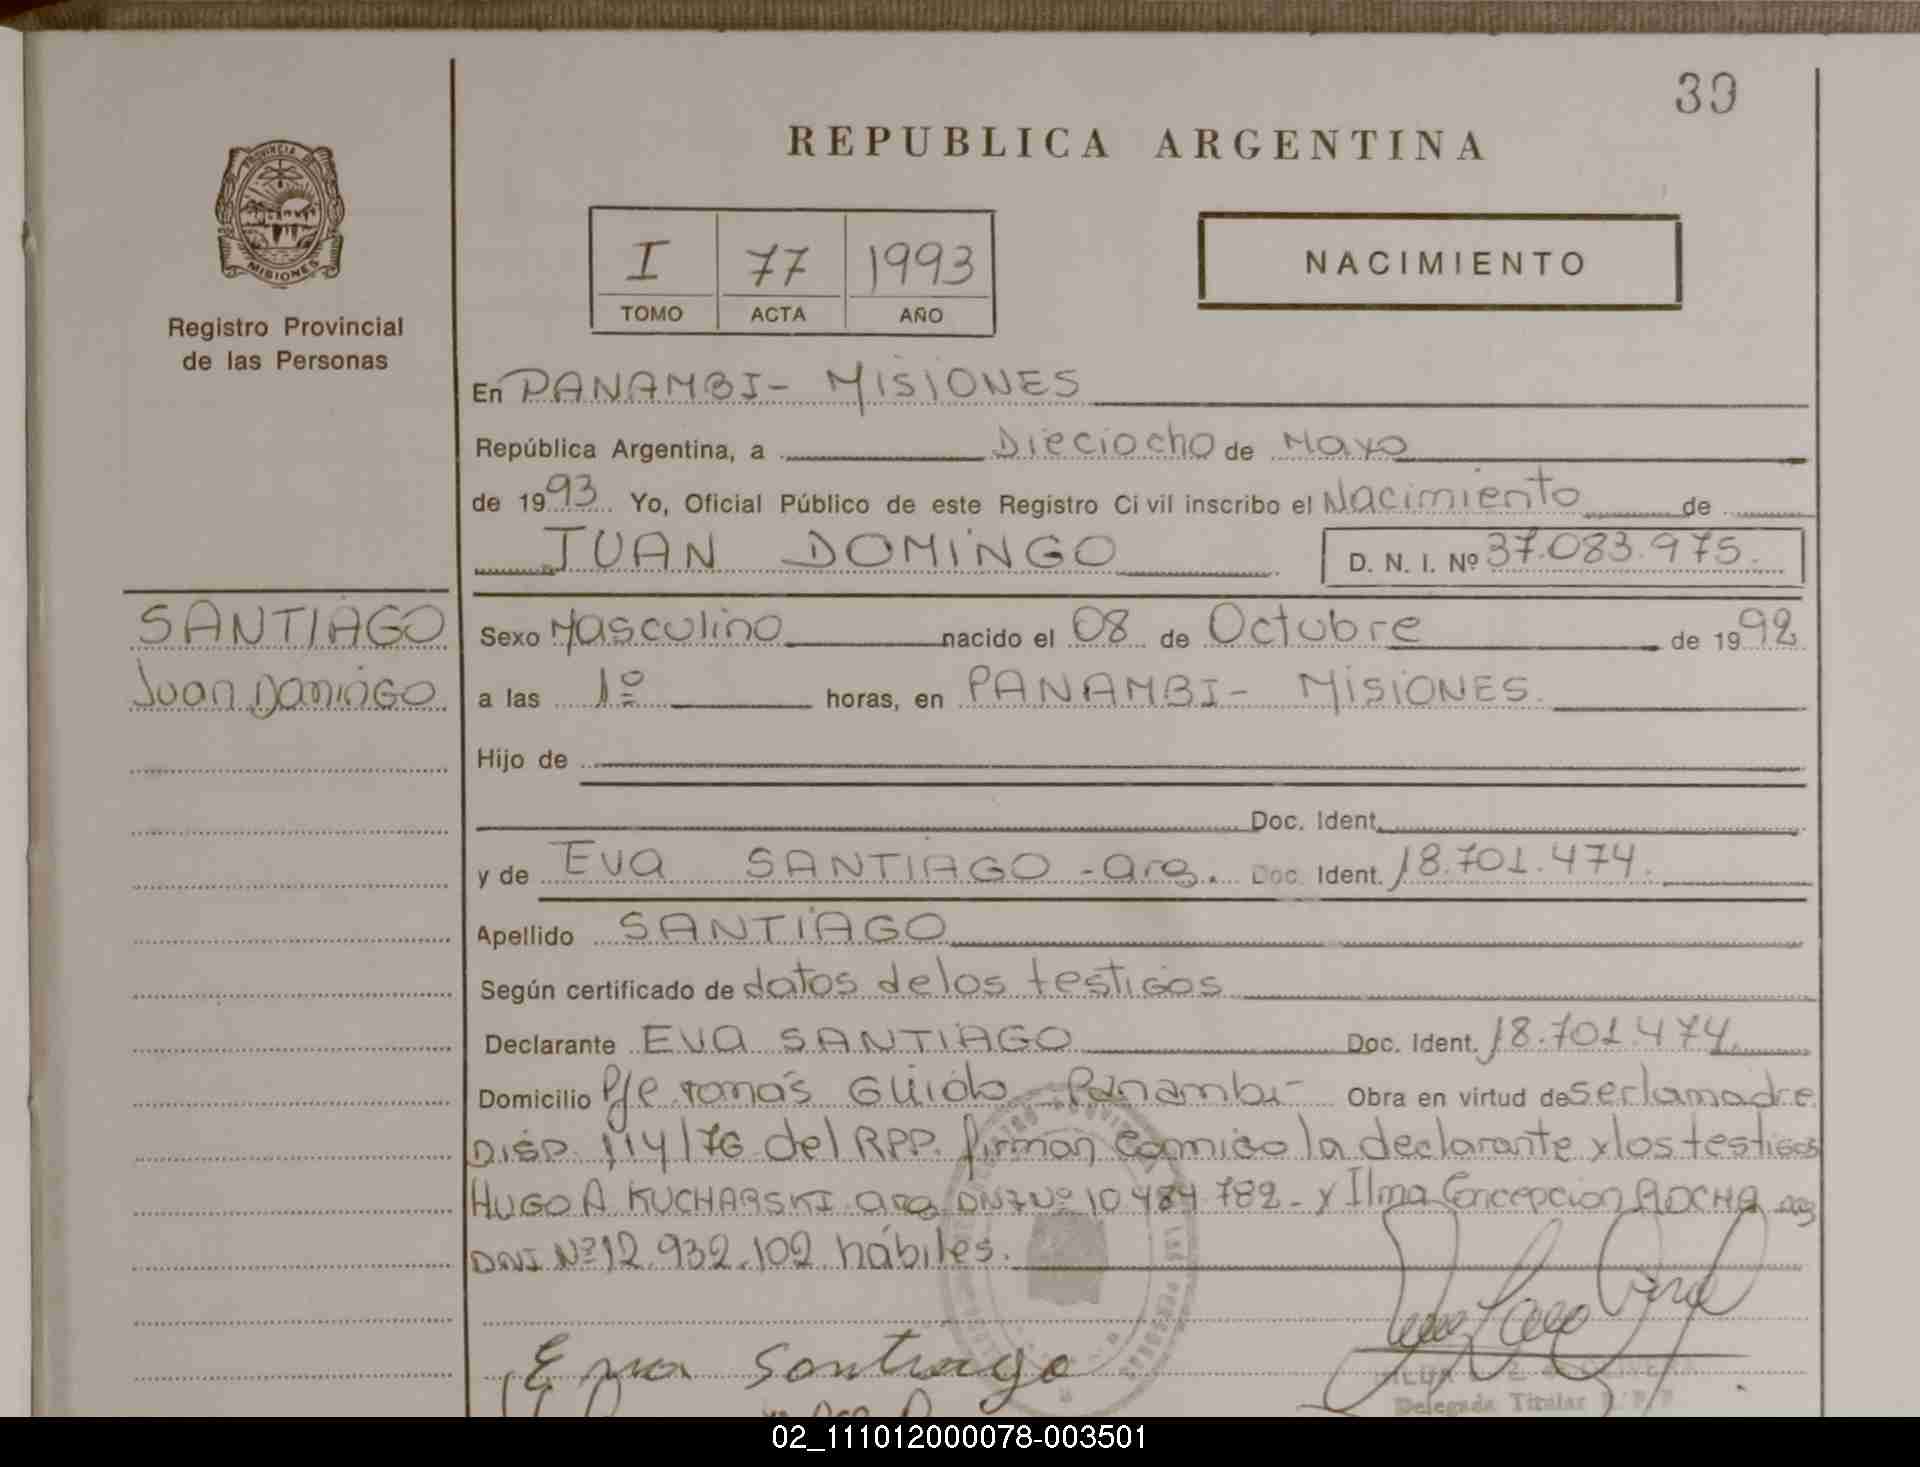 39
REPUBLICA ARGENTINA
PROVINCIA DE
MISIONES
Registro Provincial
de las Personas
I 77 1993
TOMO ACTA AÑO
NACIMIENTO
En PANAMBI - MISIONES
República Argentina, a Dieciocho de Mayo
de 1993 Yo, Oficial Público de este Registro Civil inscribo el Nacimiento de
JUAN DOMINGO D. N. I. Nº 37.083.975.
SANTIAGO
Juan DOMINGO
Sexo Masculino nacido el 08 de Octubre de 1992
a las 1º horas, en PANAMBI - MISIONES.
Hijo de
Doc. Ident.
y de EVA SANTIAGO - arg. Doc. Ident. 18.701.474.
Apellido SANTIAGO
Según certificado de datos de los testigos
Declarante EVA SANTIAGO Doc. Ident. 18.701.474.
Domicilio Pje Tomás Guido Panambi - Obra en virtud de ser la madre
DISP. 114/76 del RPP. firman conmigo la declarante y los testigos
HUGO A KUCHARSKI arg DNI Nº 10 484 782 - y Ilma Concepcion ROCHA arg
DNI Nº 12.932.102 hábiles.
Eva Santiago
Delegada Titular
02_111012000078-003501